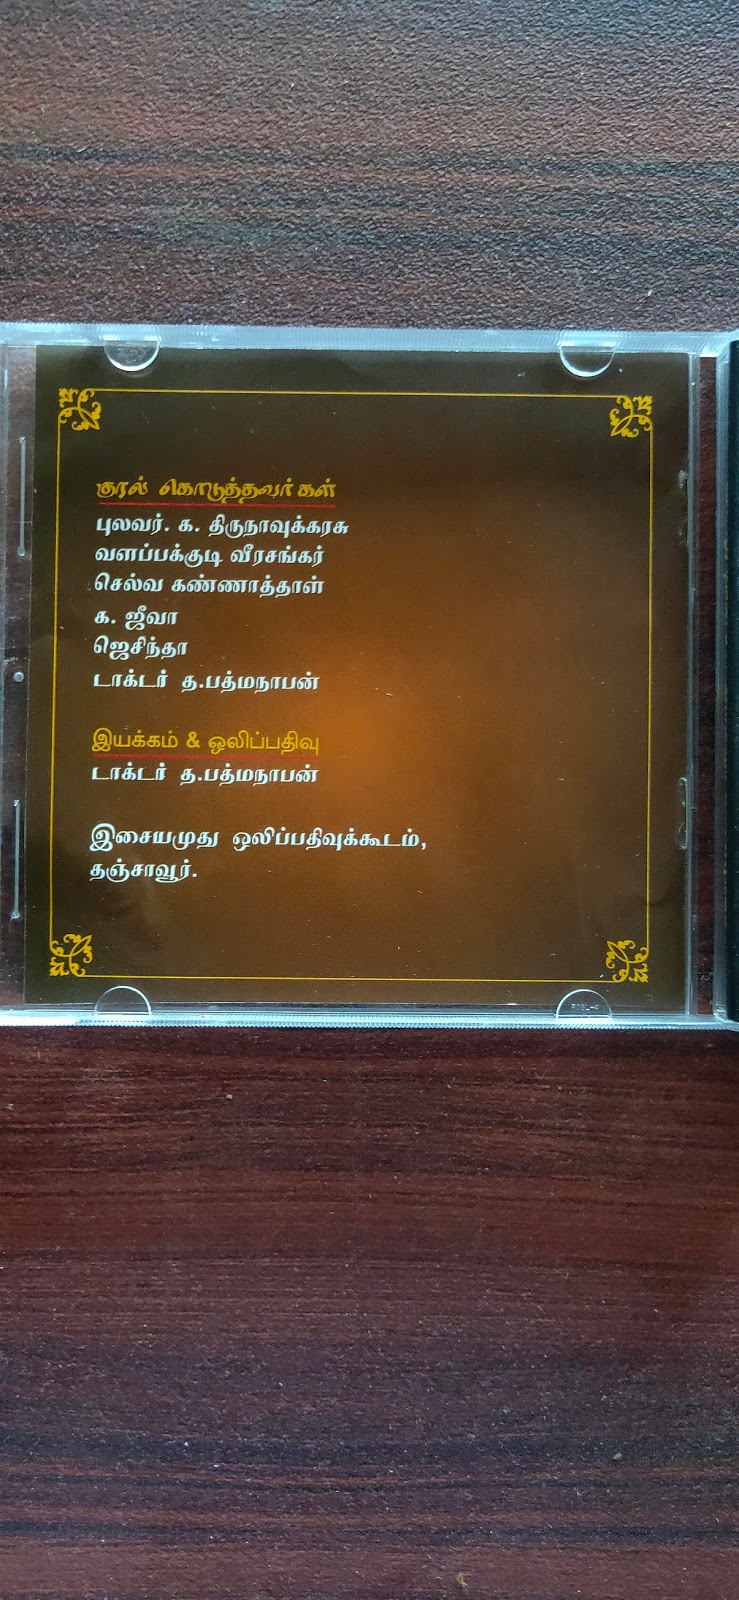 குரல் கொடுத்தவர்கள்
புலவர். க. திருநாவுக்கரசு
வளப்பக்குடி வீரசங்கர்
செல்வ கண்ணாத்தாள்
க. ஜீவா
ஜெசிந்தா
டாக்டர் த.பத்மநாபன்
இயக்கம் & ஒலிப்பதிவு
டாக்டர் த.பத்மநாபன்
இசையமுது ஒலிப்பதிவுக்கூடம்,
தஞ்சாவூர்.